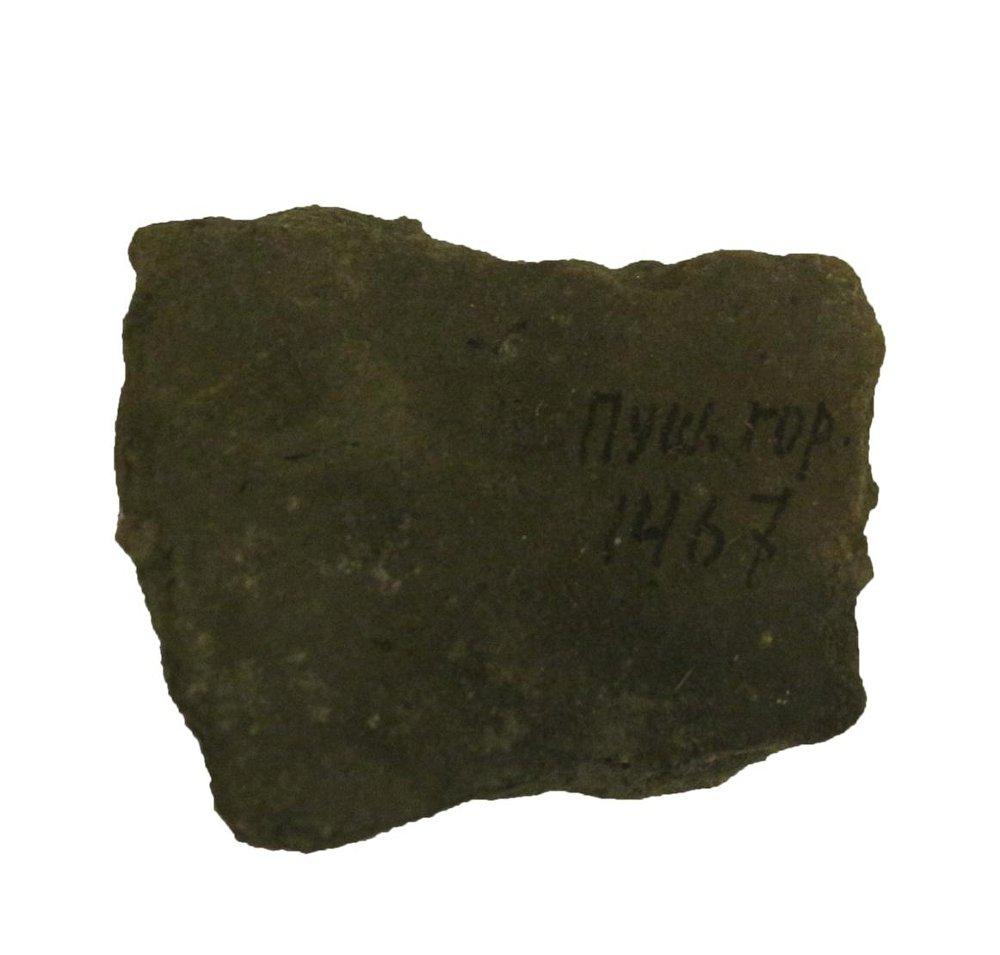 Пуш. гор.
1467